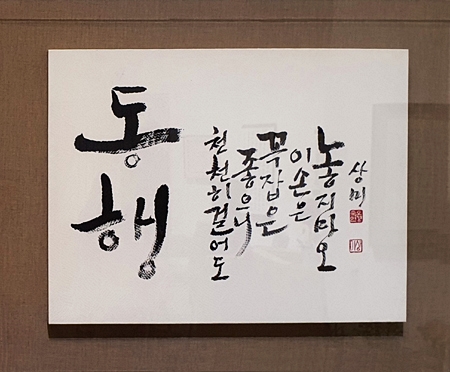 동행
천천히걸어도
좋으니
꼭잡은
이손은
놓지마오
상미